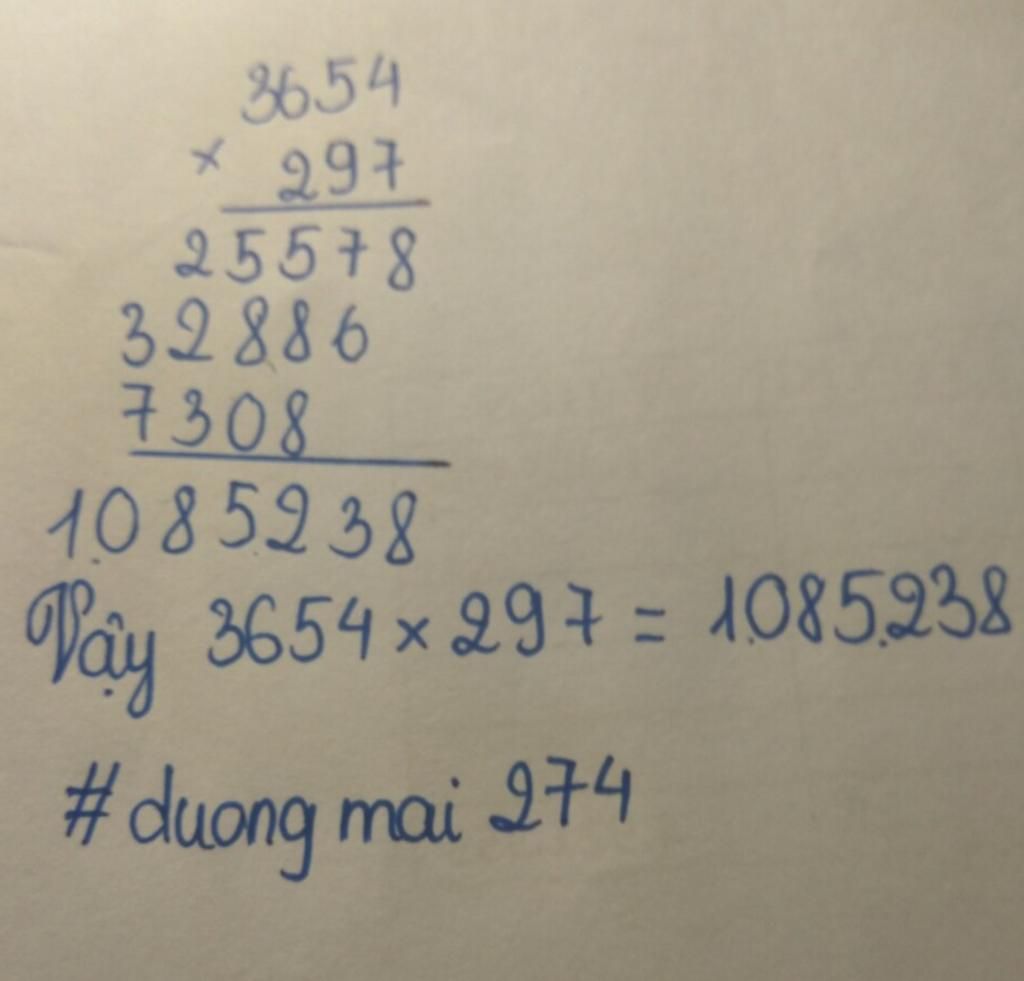 3654
× 297
25578
32886
7308
1.085.238
Vậy 3654 × 297 = 1.085.238
# duong mai 274